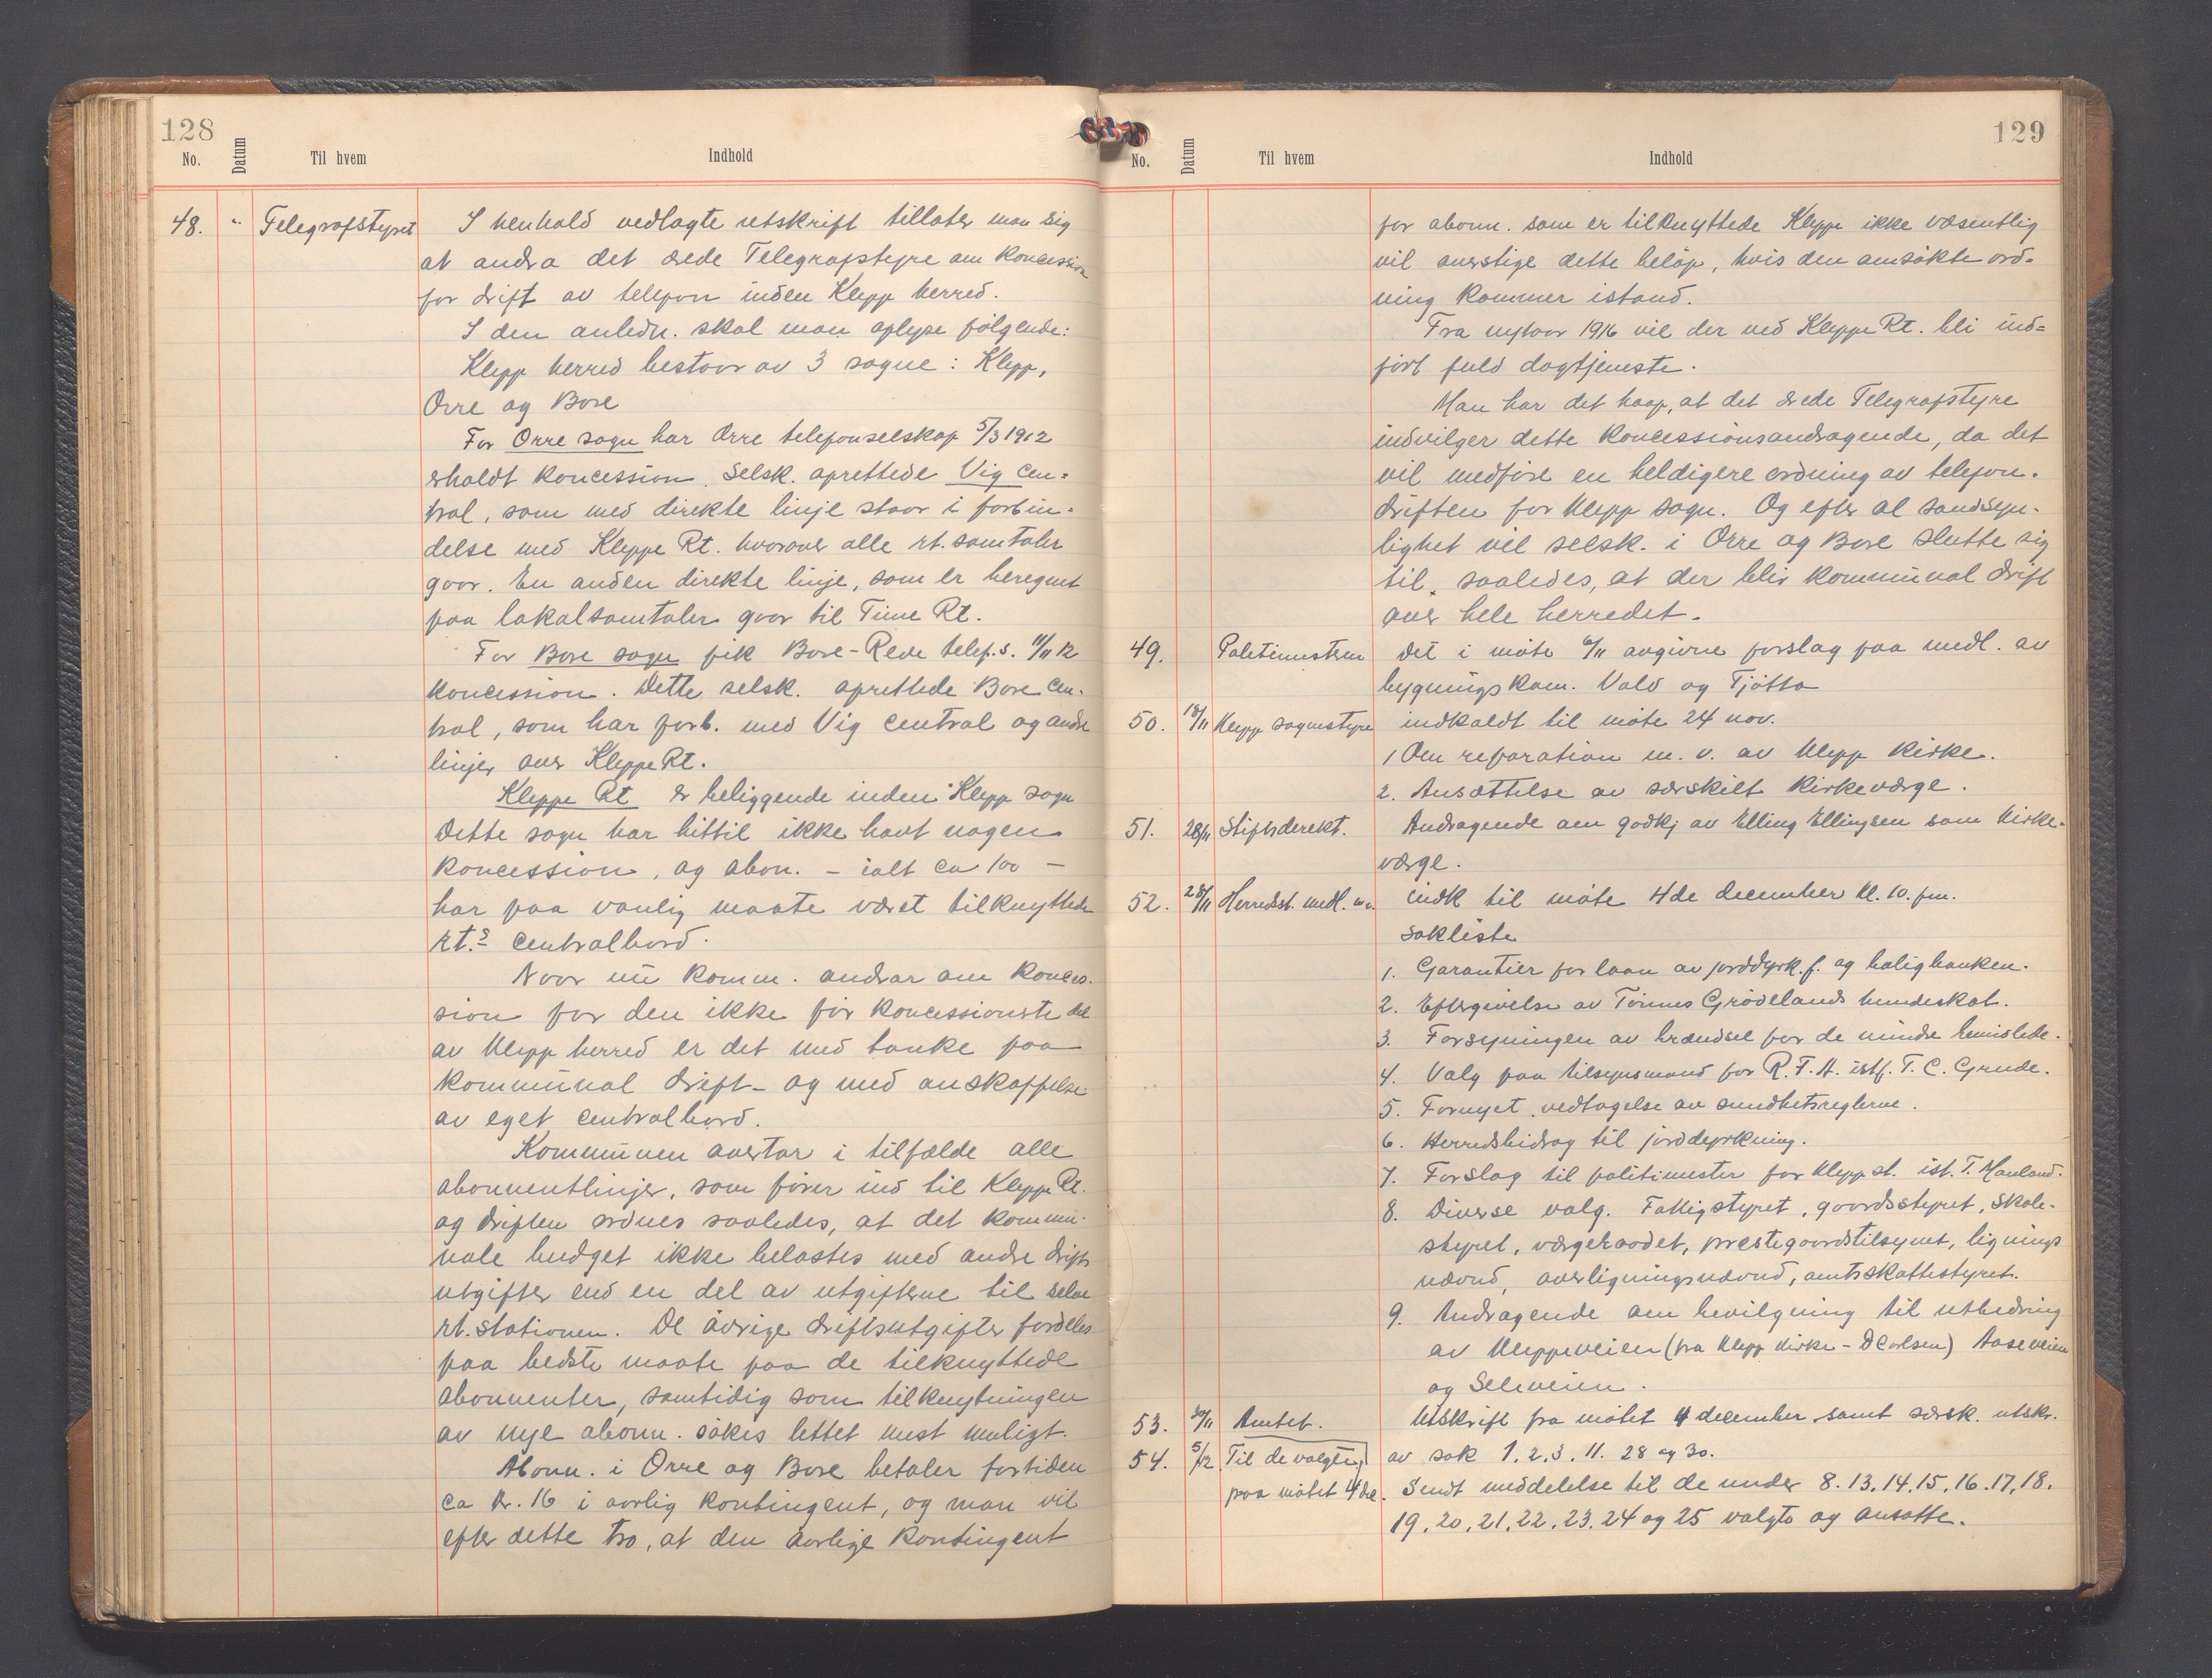 128
No. Datum Til hvem Indhold
48. " Telegrafstyret I henhold vedlagte utskrift tillater man sig
at andra det ærede Telegrafstyre om koncession
for drift av telefon inden Klepp herred.
I den anledn. skal man oplyse følgende:
Klepp herred bestaar av 3 sogne: Klepp,
Orre og Bore
For Orre sogn har Orre telefonselskap 5/3 1912
erholdt koncession. Selsk. oprettede Vig cen-
tral, som med direkte linje staar i forbin-
delse med Kleppe Rt. hvorover alle rt. samtaler
gaar. En anden direkte linje, som er beregnet
paa lokalsamtaler gaar til Time Rt.
For Bore sogn fik Bore-Reve telef.s. 11/11 12
koncession. Dette selsk. oprettede Bore cen-
tral, som har forb. med Vig central og andre
linjer over Kleppe Rt.
Kleppe Rt er beliggende inden Klepp sogn
Dette sogn har hittil ikke havt nogen
koncession, og abon. - ialt ca 100 -
har paa vanlig maate været tilknyttede
rt.s centralbord.
Naar nu komm. andrar om konces-
sion for den ikke før koncessionerte del
av Klepp herred er det med tanke paa
kommunal drift - og med anskaffelse
av eget centralbord.
Kommunen overtar i tilfælde alle
abonnentlinjer, som fører ind til Kleppe Rt.
og driften ordnes saaledes, at det kommu-
nale budget ikke belastes med andre drifts
utgifter end en del av utgifterne til selve
rt. stationen. De øvrige driftsutgifter fordeles
paa bedste maate paa de tilknyttede
abonnenter, samtidig som tilknytningen
av nye abonn. søkes lettet mest muligt.
Abonn. i Orre og Bore betaler fortiden
ca kr. 16 i aarlig kontingent, og man vil
efter dette tro, at den aarlige kontingent
129
No. Datum Til hvem Indhold
for abonn. som er tilknyttede Kleppe ikke væsentlig
vil overstige dette beløp, hvis den ansøkte ord-
ning kommer istand.
Fra nytaar 1916 vil der ved Kleppe Rt. bli ind=
ført fuld dagtjeneste.
Man har det haap, at det ærede Telegrafstyre
indvilger dette koncessionsandragende, da det
vil medføre en heldigere ordning av telefon-
driften for Klepp sogn. Og efter al sandsyn-
lighet vil selsk. i Orre og Bore slutte sig
til, saaledes, at der blir kommunal drift
over hele herredet.
49. Politimesteren det i møte 6/11 avgivne forslag paa medl. av
bygningskom. Vold og Tjøtta
50. 18/11 Klepp sognestyre indkaldt til møte 24 nov.
1 Om reparation m. v. av Klepp kirke.
2. Ansættelse av særskilt kirkeværge.
51. 28/11 Stiftsderekt. Andragende om godkj av Elling Ellingsen som kirke-
værge.
52. 28/11 Herredsst. medl. m.v. indk til møte 4de december kl. 10. fm.
Sakliste
1. Garantier for laan av jorddyrk.f. og boligbanken.
2. Eftergivelse av Tønnes Grødelands hundeskat.
3. Forsyningen av brændsel for de mindre bemidlede.
4. Valg paa tilsynsmand for R. F. A. istf. T. C. Grude.
5. Fornyet vedtagelse av sundhetsreglerne.
6. Herredsbidrag til jorddyrkning.
7. Forslag til politimester for Klepp st. ist. T. Hauland.
8. Diverse valg. Fattigstyret, gaardsstyret, skole-
styret, værgeraadet, prestegaardstilsynet, lignings
nævnd, overligningsnævnd, amtsskattestyret.
9. Andragende om bevilgning til utbedring
av Kleppeveien (fra Klepp kirke - D Carlsen) Aaseveien
og Seleveien.
53. 30/11 Amtet. Utskrift fra møtet 4 december samt særsk. utskr.
54. 5/12 Til de valgte av sak 1. 2. 3. 11. 28 og 30.
paa møtet 4 de. Sendt meddelelse til de under 8. 13. 14. 15. 16. 17. 18.
19. 20. 21. 22. 23. 24 og 25 valgte og ansatte.